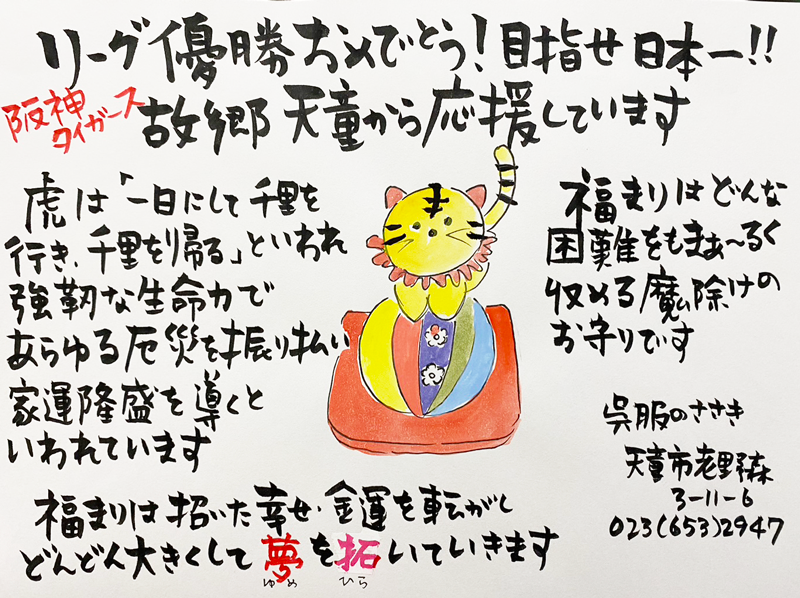 リーグ優勝おめでとう!目指せ日本一!!
阪神
タイガース
故郷天童から応援しています
虎は「一日にして千里を
行き、千里を帰る」といわれ
強靭な生命力で
あらゆる厄災を振り払い
家運隆盛を導くと
いわれています
福まりはどんな
困難をもまぁ〜るく
収める魔除けの
お守りです
呉服のささき
天童市老野森
3-11-6
023(653)2947
福まりは招いた幸せ・金運を転がし
どんどん大きくして夢を拓いていきます
ゆめ ひら